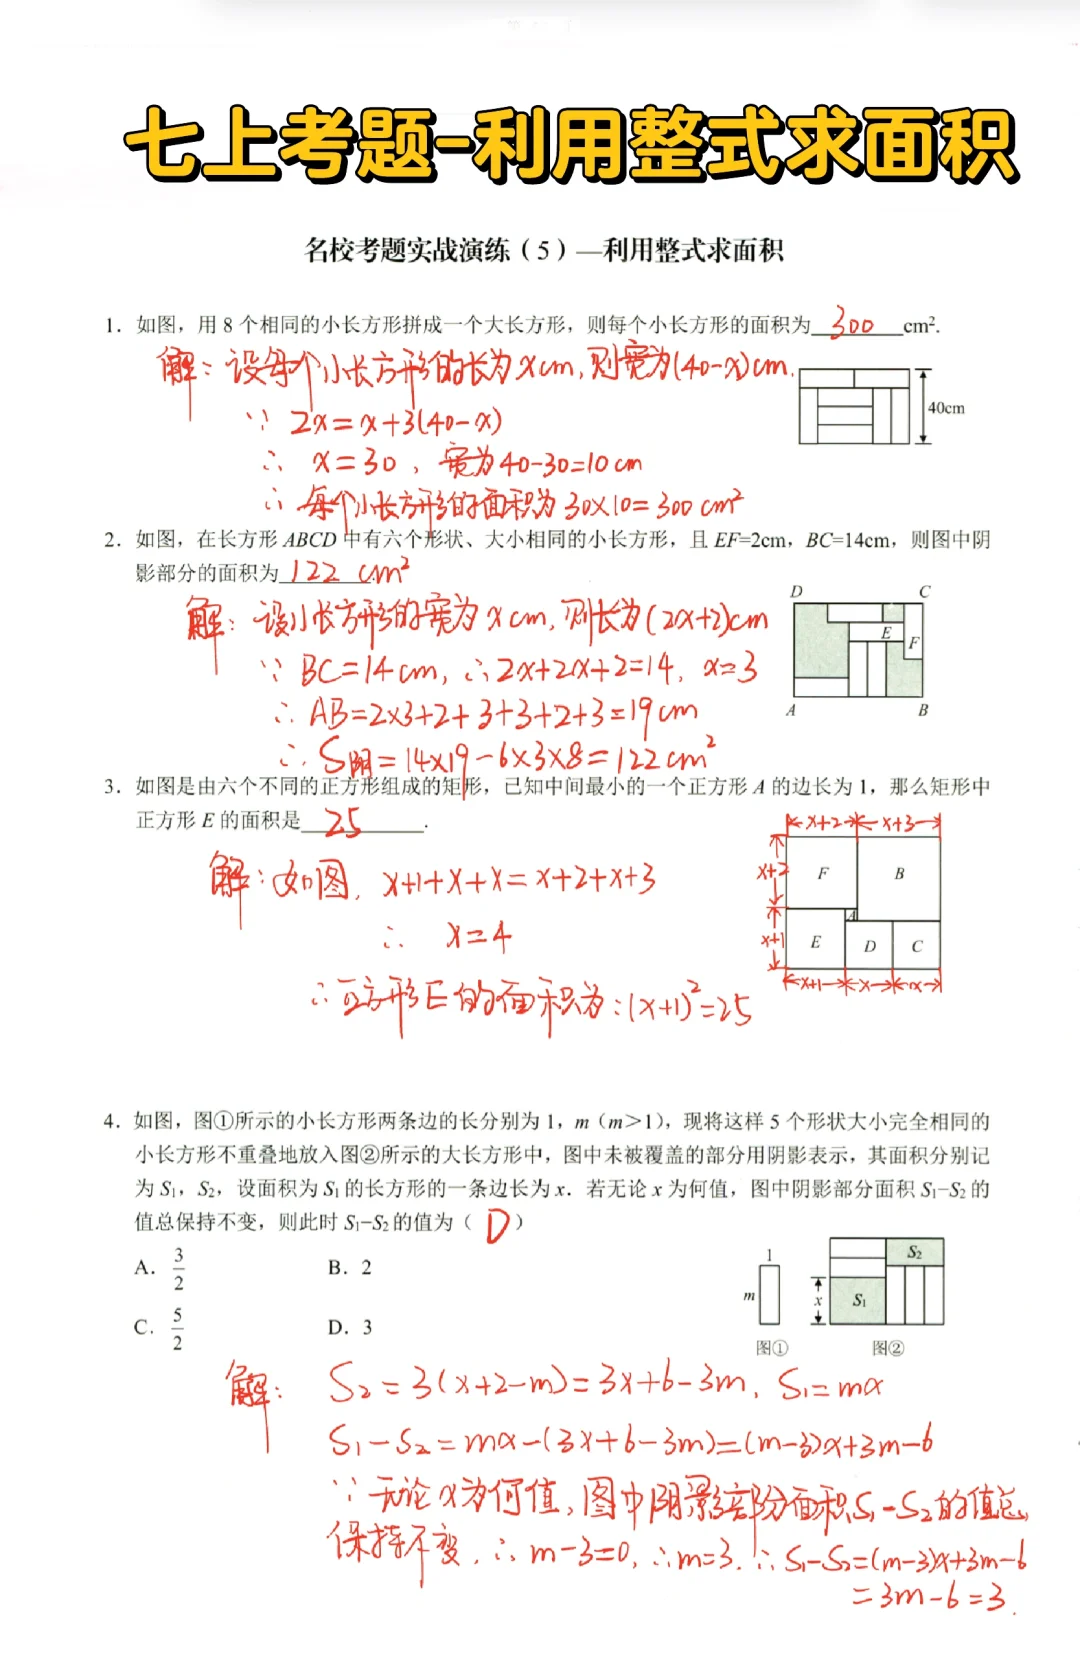 七上考题-利用整式求面积
名校考题实战演练（5）—利用整式求面积
1. 如图，用 8 个相同的小长方形拼成一个大长方形，则每个小长方形的面积为 300 cm².
解：设每个小长方形的长为xcm，则宽为(40-x)cm.
∵ 2x=x+3(40-x)
∴ x=30，宽为40-30=10cm
∴ 每个小长方形的面积为 30×10=300cm²
40cm
2. 如图，在长方形 ABCD 中有六个形状、大小相同的小长方形，且 EF=2cm，BC=14cm，则图中阴
影部分的面积为 122 cm²
解：设小长方形的宽为xcm，则长为(2x+2)cm
∵ BC=14cm，∴2x+2x+2=14，x=3
∴ AB=2×3+2+3+3+2+3=19cm
∴ S阴=14×19-6×3×8=122cm²
D C
E
F
A B
3. 如图是由六个不同的正方形组成的矩形，已知中间最小的一个正方形 A 的边长为 1，那么矩形中
正方形 E 的面积是 25 .
解：如图，x+1+x+x=x+2+x+3
∴ x=4
∴正方形E的面积为：(x+1)²=25
x+2 x+3
x+2 F B
A
x+1 E D C
x+1 x x
4. 如图，图①所示的小长方形两条边的长分别为 1，m（m＞1），现将这样 5 个形状大小完全相同的
小长方形不重叠地放入图②所示的大长方形中，图中未被覆盖的部分用阴影表示，其面积分别记
为 S₁，S₂，设面积为 S₁ 的长方形的一条边长为 x．若无论 x 为何值，图中阴影部分面积 S₁−S₂ 的
值总保持不变，则此时 S₁−S₂ 的值为（ D ）
A. 3/2 B. 2
C. 5/2 D. 3
1
m
图①
S₂
x S₁
图②
解： S₂=3(x+2-m)=3x+6-3m，S₁=mx
S₁-S₂=mx-(3x+6-3m)=(m-3)x+3m-6
∵无论x为何值，图中阴影部分面积S₁-S₂的值总
保持不变，∴m-3=0，∴m=3．∴S₁-S₂=(m-3)x+3m-6
=3m-6=3.